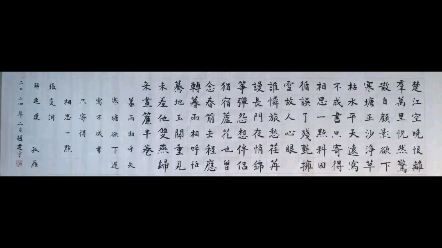 楚江空晚悵離
羣萬里恍然驚
散自顧影欲下
寒塘正沙淨草
枯水平天遠寫
不成書只寄得
相思一點料因
循誤了殘氈擁
雪故人心眼
誰憐旅愁荏苒
謾長門夜悄錦
箏彈怨想伴侶
猶宿蘆花也曾
念春前去程應
轉暮雨相呼怕
驀地玉關重見
未羞他雙燕歸
來畫簾半卷
暮雨相呼失
寒塘欲下遲
寫不成書
只寄得
相思一點
解連環 孤雁
張炎詞
二〇二四年